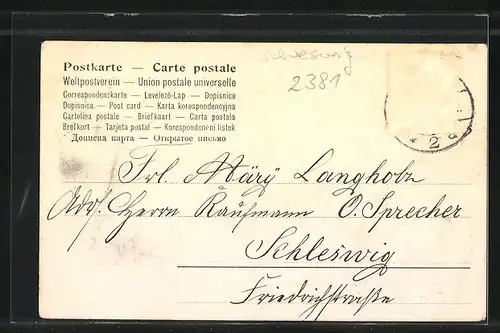 Postkarte — Carte postale
Weltpostverein — Union postale universelle
Correspondenzkarte — Levelező-Lap — Dopisnice
Dopisnica — Post card — Karta korespondencyjna
Cartolina postale — Briefkaart — Carta postala
Brefkort — Tarjeta postal — Korespondenční lístek
Дописна карта — Открытое письмо
Schleswig
2381
2
Frl. Märy Langholz
Adr. Herrn Kaufmann O. Sprecher
Schleswig
Friedrichstraße